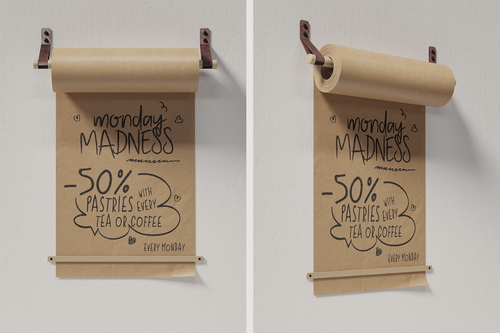 monday
MADNESS
-50% WITH
PASTRIES EVERY
TEA OR COFFEE
EVERY MONDAY
monday
MADNESS
-50% WITH
PASTRIES EVERY
TEA OR COFFEE
EVERY MONDAY